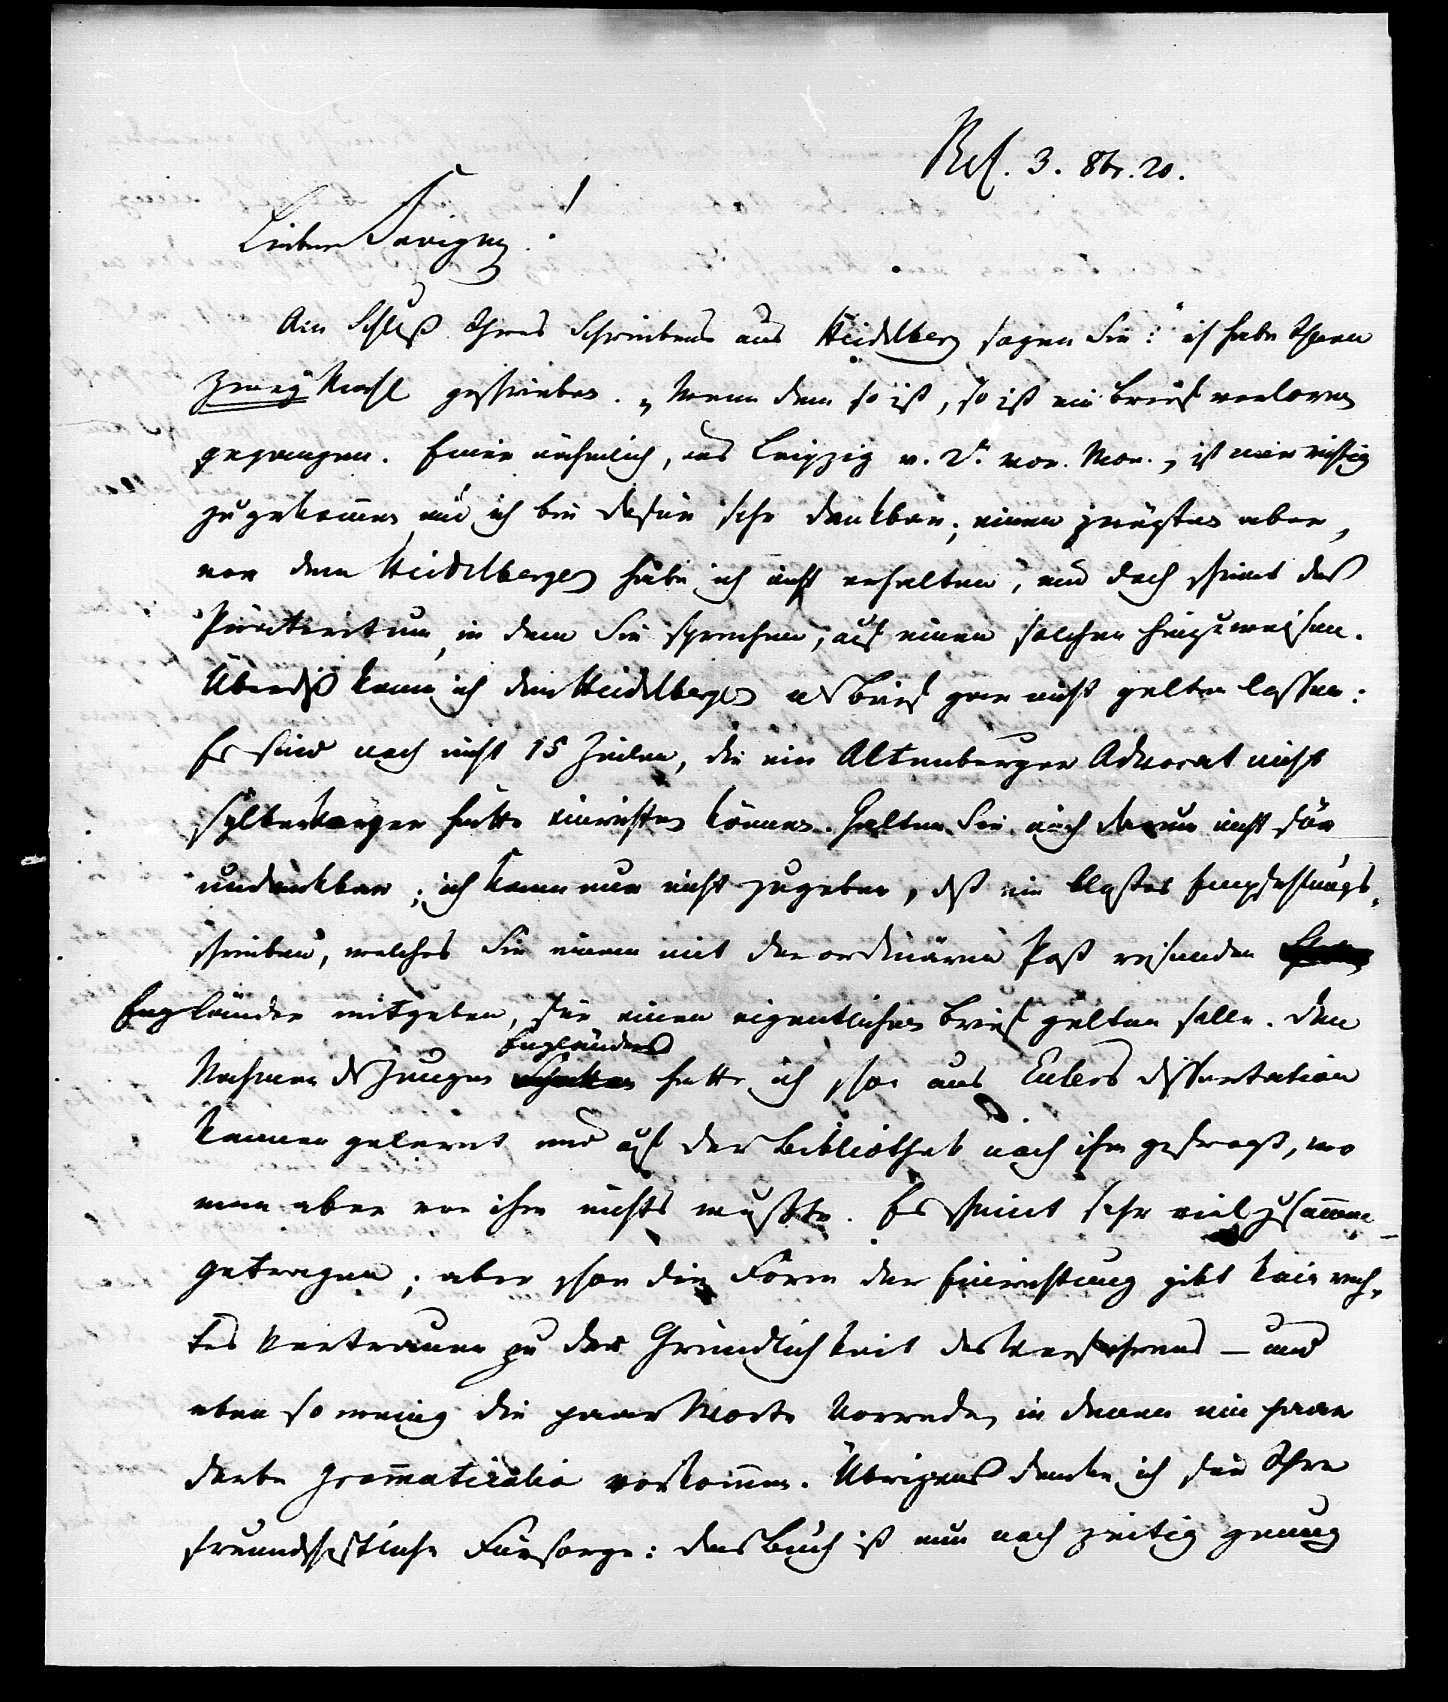 Brl. 3. 8br. 20.
Lieber Savigny!
Am Schluß Ihres Schreibens aus Heidelberg sagen Sie: "ich habe Ihnen
zweymahl geschrieben." Wenn dem so ist, so ist ein Brief verloren
gegangen. Einer nehmlich, aus Leipzig v. vor. Mon., ist mir richtig
zugekommen und ich bin dafür sehr dankbar; einen zweyten aber,
vor dem Heidelberger habe ich nicht erhalten, und doch scheint das
Präteritum, in dem Sie sprechen, auf einen solchen hinzuweisen.
Überdiß kann ich den Heidelberger als Brief gar nicht gelten lassen:
Es sind noch nicht 15 Zeilen, die ein Altenburger Advocat nicht
sylbenkarger hätte einrichten können. Halten Sie mich darum nicht für
undankbar; ich kann nur nicht zugeben, daß ein bloßes Empfehlungs-
schreiben, welches Sie einem mit der ordinären Post reisenden
Engländer mitgeben, für einen eigentlichen Brief gelten solle. Den
Nahmen des jungen Engländers hatte ich schon aus Eulers Dissertation
kennen gelernt und auf der Bibliothek nach ihm gefragt, wo
man aber von ihm nichts wußte. Er scheint sehr viel zusammen-
getragen; aber schon die Form der Einrichtung gibt kein rech-
tes Vertrauen zu der Gründlichkeit des Verfahrens – und
eben so wenig die paar Worte Vorrede, in denen ein paar
derbe grammaticalia vorkommen. Übrigens danke ich für Ihre
freundschaftliche Fürsorge: das Buch ist nun noch zeitig genug